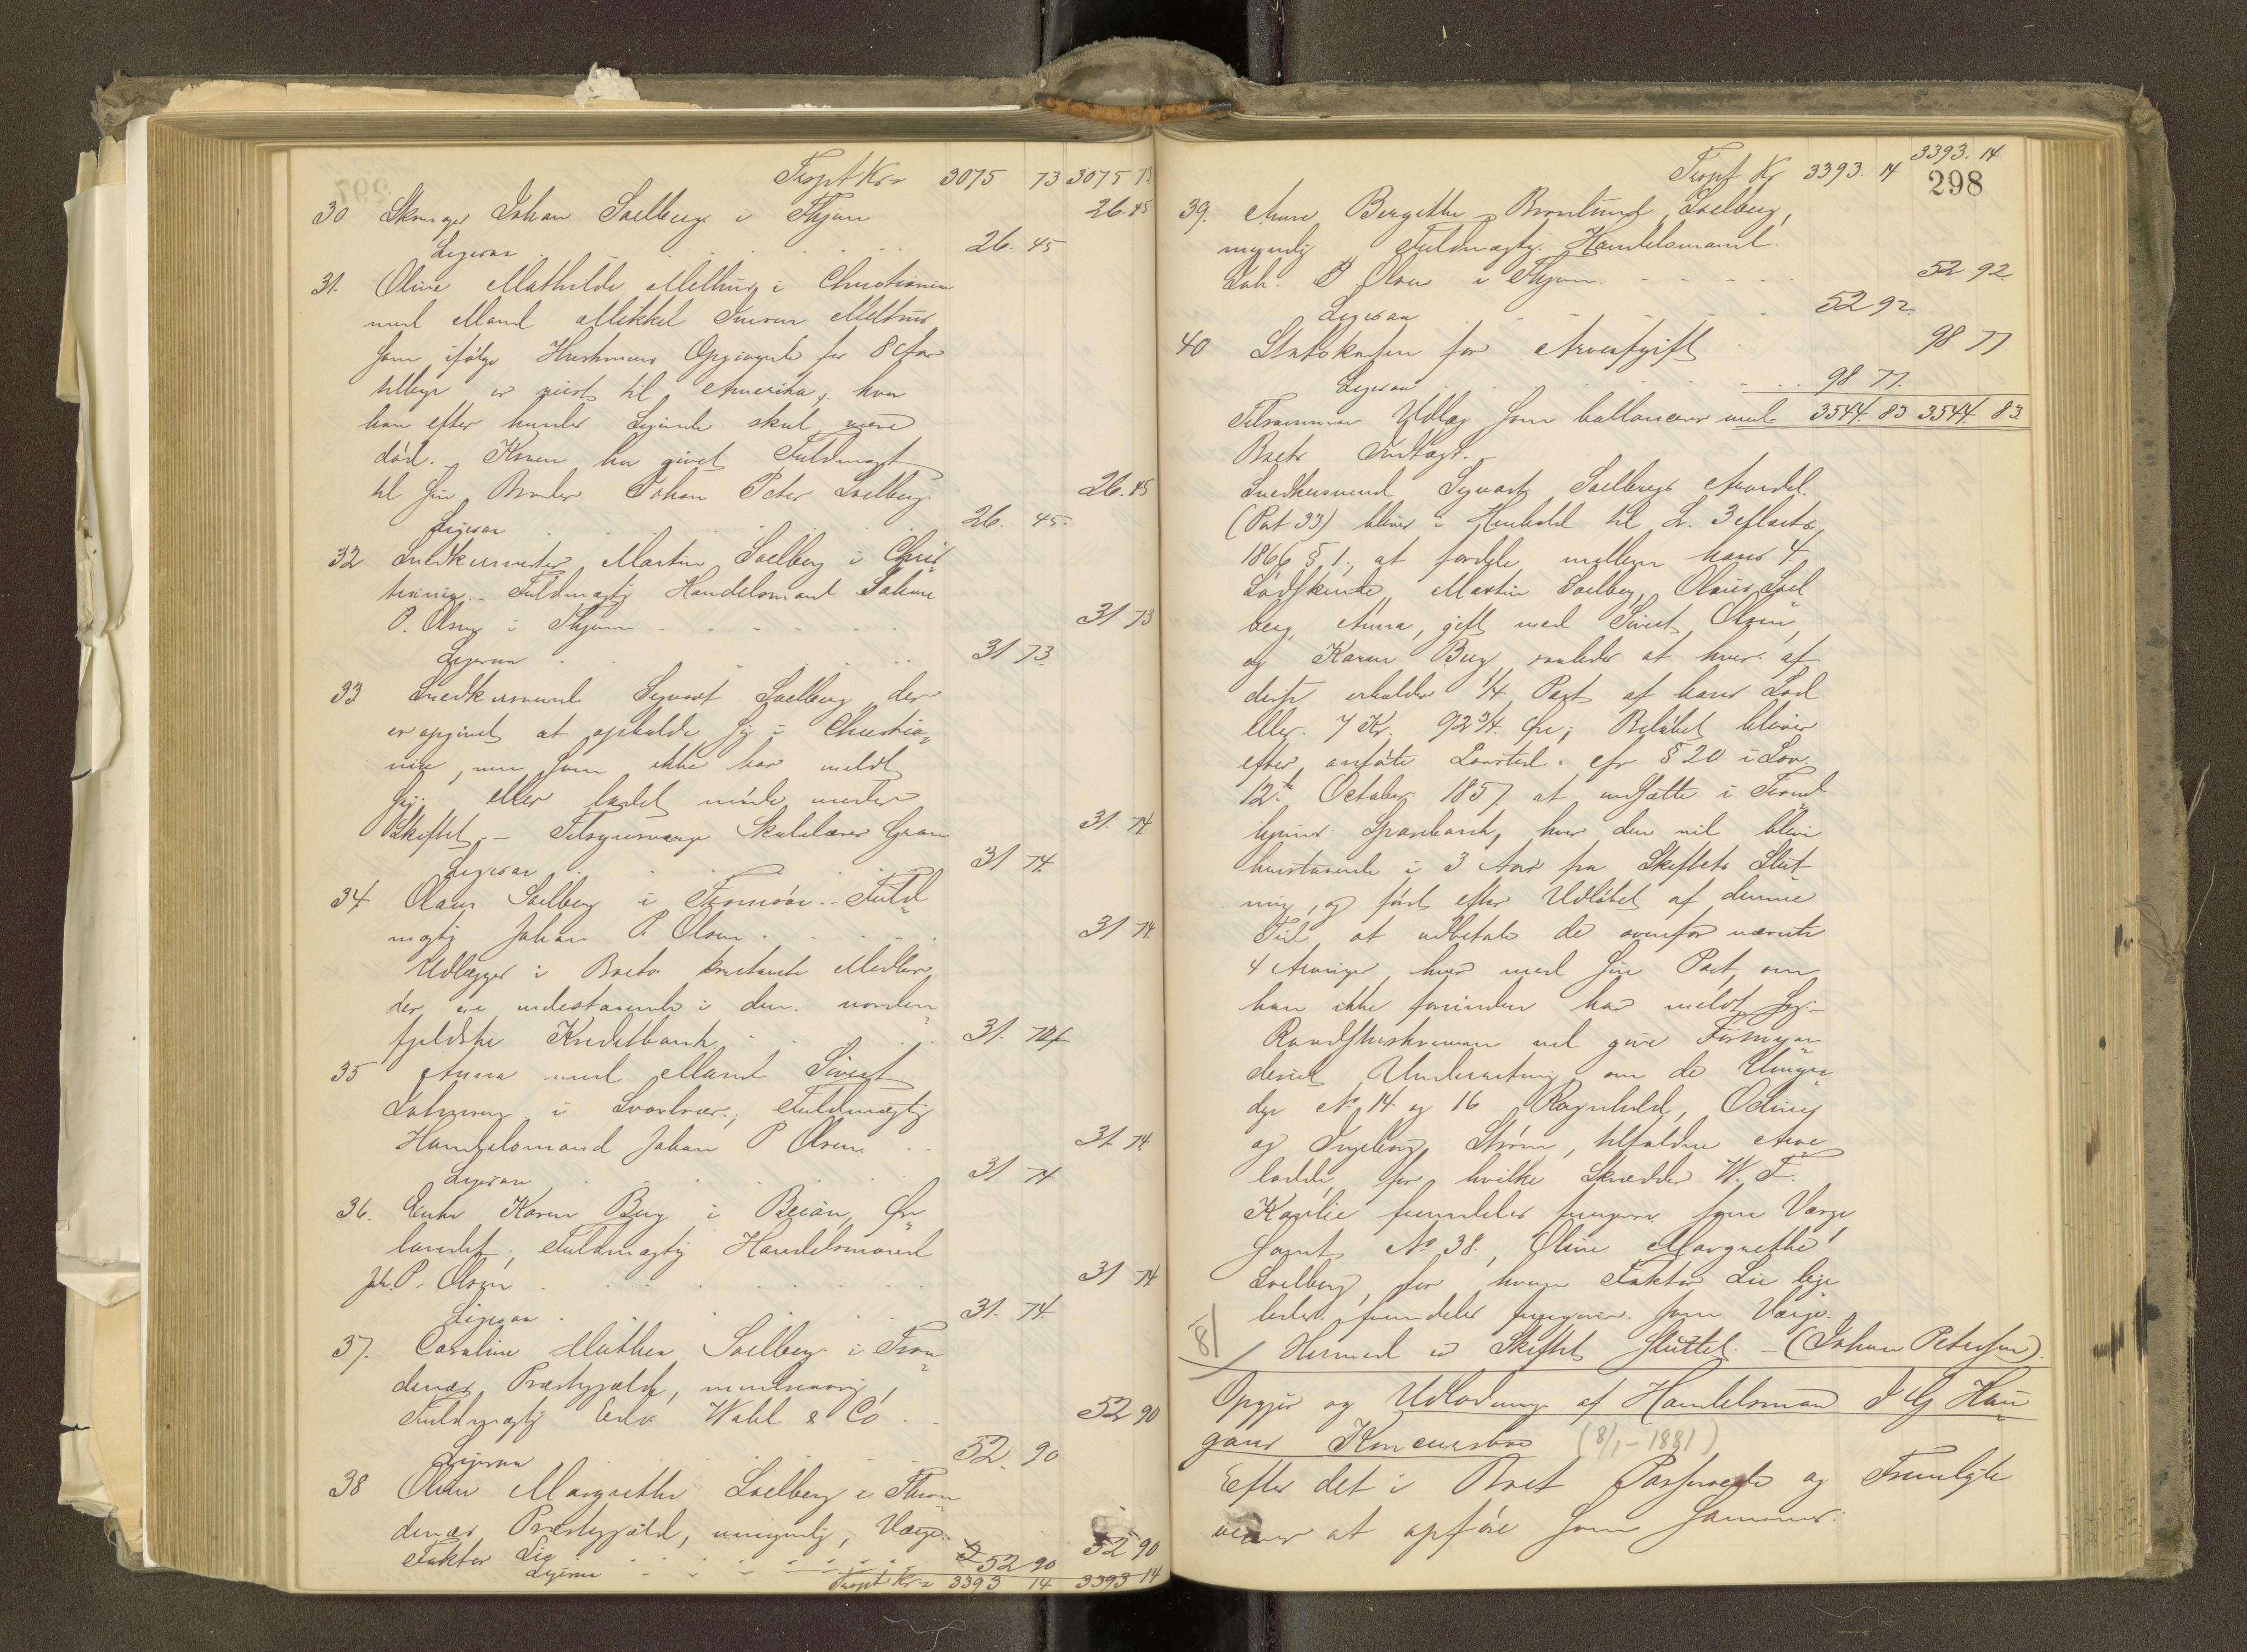 Tropt Kr 3075 73 3075 73
30 Johan Soelberg i Thjem 26. 45
Ligesaa 26. 45
31. Oline Mathilde Melhuus i Christiania
med Mand Mikkel Melhuus
som ifølge Hustruens Opgivende for 8 Aar
tilbage er reist til Amerika, hvor
han efter hendes Sigende skal være
død. Konen har givet Fuldmagt
til sin Broder Johan Peter Soelberg 26. 45
Ligesaa 26. 45.
32 Snedkermester Martin Soelberg i Chris
tiania. Fuldmægtig Handelsmand Johan
P. Olsen i Thjem 31 73
Ligesaa 31 73.
33 Snedkersvend Sigvart Soelberg, der
er opgivet at opholde sig i Christia
nia, men som ikke har meldt
sig eller ladet møde under
Skiftet. – Tilsynsværge Skolelærer Gran 31. 74
Ligesaa 31 74.
34 Olaus Soelberg i Tromsøe. Fuld
mægtig Johan P. Olsen 31 74.
Udlægges i Boets kontante Midler,
der ere indestaaende i den norden
fjeldske Kreditbank 31. 74
35 Anna med Mand Sivert
Johnsen i Svolvær; Fuldmægtig
Handelsmand Johan P Olsen 31. 74
Ligesaa 31 74
36. Enke Karen Berg i Beian, Ør
landet; Fuldmægtig Handelsmand
Joh. P. Olsen 31 74
Ligesaa 31. 74.
37. Caroline Mathea Soelberg i Tron
denæs Præstegjæld, mindreaarig,
Fuldmægtig Wahl & Co 52 90
Ligesaa 52. 90
38 Oline Margrethe Soelberg i Thron
denæs Præstegjæld, umyndig, Værge
Faktor Lie 52 90
Ligesaa 52 90
Tropt Kr 3393 14 3393 14
3393. 14
Tropt Kr 3393. 14
298
39. Anne Bergitte Brontund Soelberg,
myndig Fuldmægtig Handelsmand
Joh. P Olsen i Thjem 52 92.
Ligesaa 52 92.
40 Statskassen for Arveafgift 98 77
Ligesaa 98 77.
Tilsammen Udlæg som ballancerer med 3544. 83 3544. 83
Boets Indtægt. –
Snedkersvend Sigvart Soelbergs Arvedel
(Post 33) bliver i Henhold til L. 3 Marts
1866 § 1, at fordele mellem hans 4
Sødskende Martin Soelberg, Olaus Soel
berg, Anna, gift med Sivert Olsen,
og Karen Berg saaledes at hver af
disse erholder 1/4 Part af hans Lod
eller 7 Kr. 92 3/4 Øre; Beløbet bliver
efter anførte Lovsted cfr § 20 i Lov
12te October 1857 at indsætte i Trond
hjems Sparebank, hvor den vil blive
henstaaende i 3 Aar fra Skiftets Slut
ning, og først efter Udløbet af denne
Tid at udbetale de ovenfor nævnte
4 Arvinger hver med sin Part, om
han ikke forinden har meldt sig. –
Raadstueskriveren vil give Formyn
deriet Underretning om de Umyn
dige No 14 og 16 Ragnhild, Odiny
og Ingeborg Strøm, tilfaldne Arve
lodde, for hvilke Skrædder W. F.
Kaalie fremdeles fungerer som Værge
samt No 38, Oline Margrethe
Soelberg, for hvem Faktor Lie lige
ledes fremdeles fungerer som Værge.
Hermed er Skiftet sluttet. – (Johan Petersen).
8/
Opgjør og Udlodning af Handelsmand
gans Konkursbo (8/1 – 1881)
Efter det i Boet Passerede og Fremlagte
at opføre som